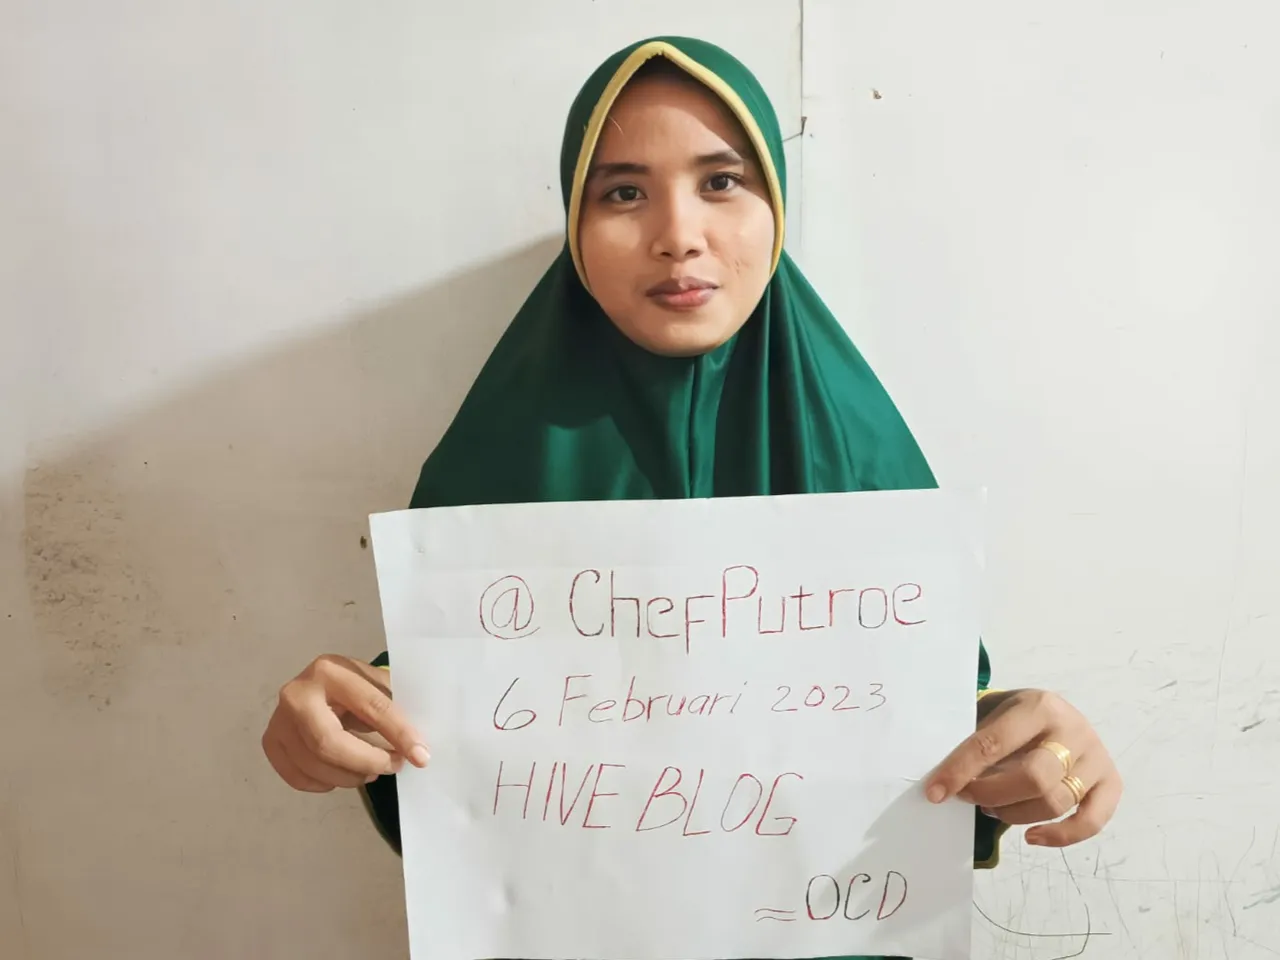 @ChefPutroe
6 Februari 2023
HIVE BLOG
=OCD